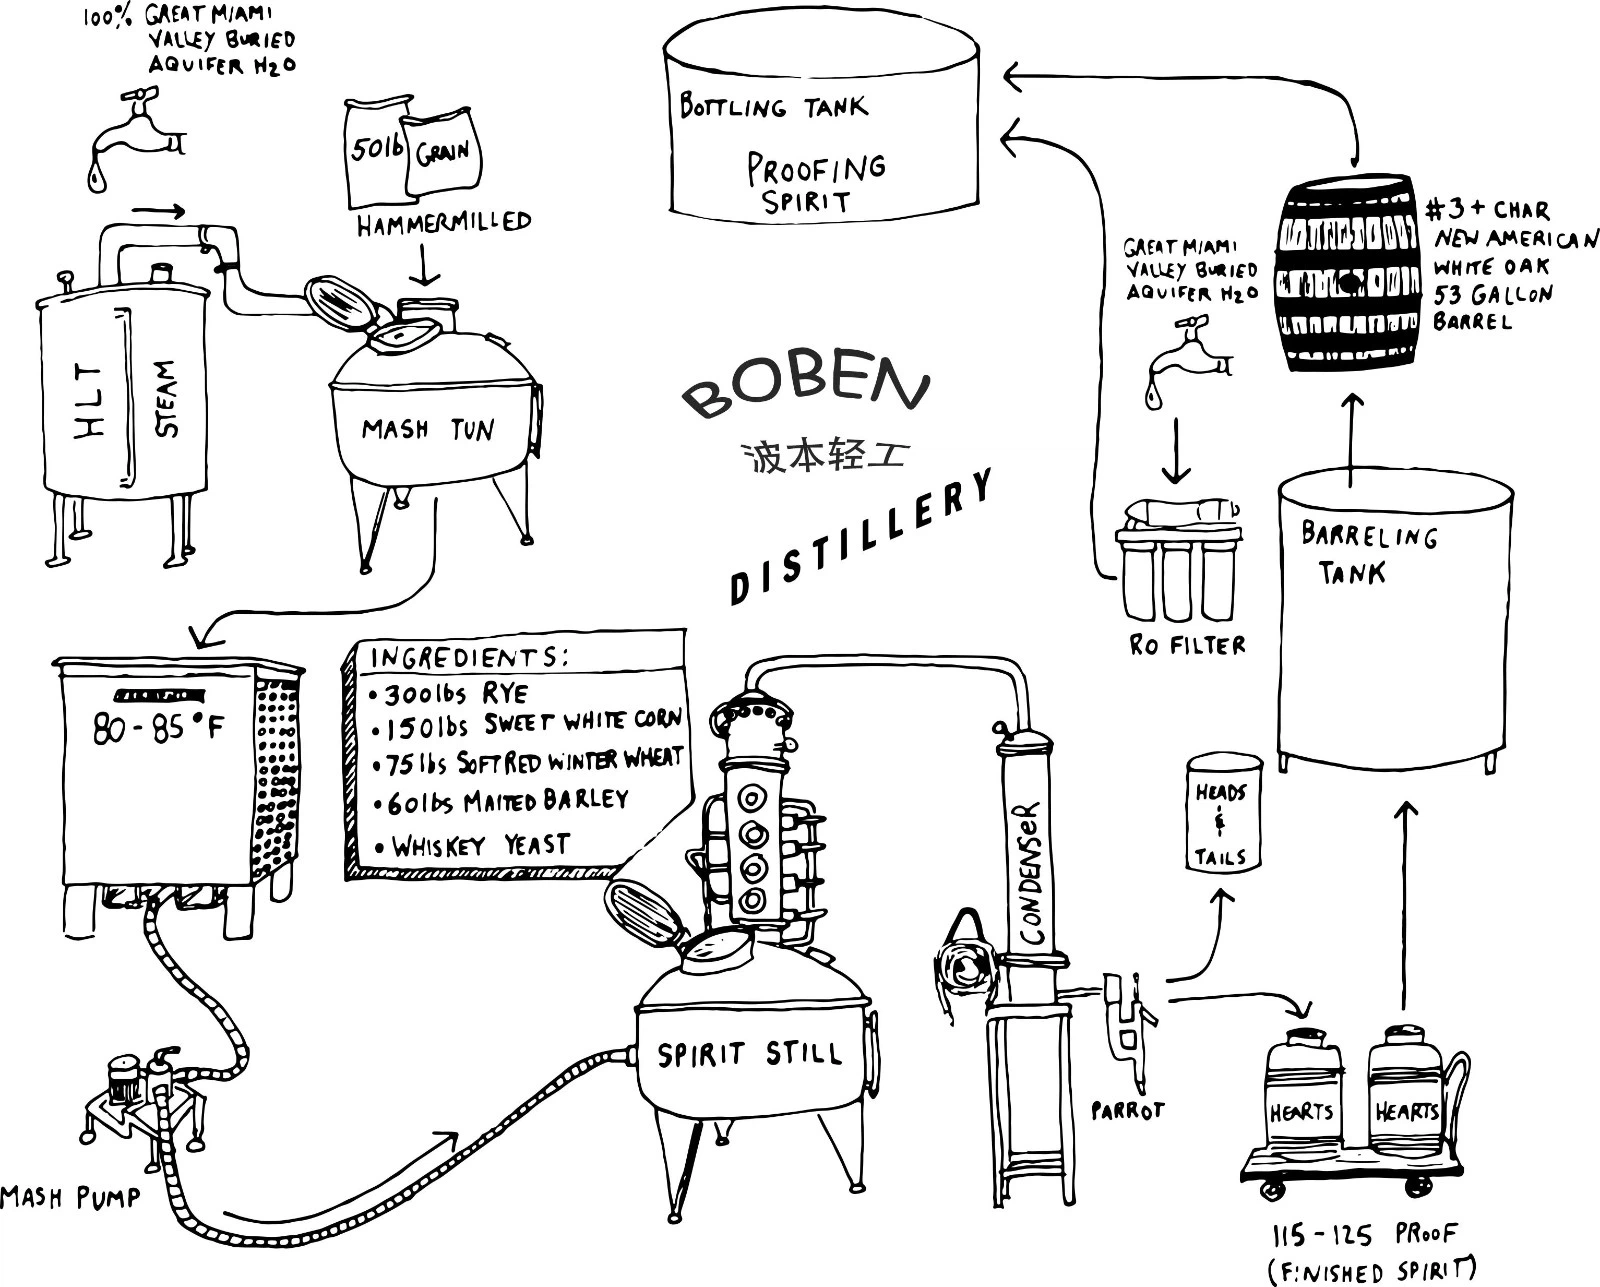 100% GREAT MIAMI
VALLEY BURIED
AQUIFER H2O
50lb
GRAIN
HAMMERMILLED
HLT
STEAM
MASH TUN
BOTTLING TANK
PROOFING
SPIRIT
#3+ CHAR
NEW AMERICAN
WHITE OAK
53 GALLON
BARREL
GREAT MIAMI
VALLEY BURIED
AQUIFER H2O
RO FILTER
BARRELING
TANK
BOBEN
波本轻工
DISTILLERY
80-85°F
INGREDIENTS:
• 300lbs RYE
• 150lbs SWEET WHITE CORN
• 75lbs SOFT RED WINTER WHEAT
• 60lbs MALTED BARLEY
• WHISKEY YEAST
CONDENSER
HEADS
&
TAILS
SPIRIT STILL
PARROT
HEARTS
HEARTS
MASH PUMP
115-125 PROOF
(FINISHED SPIRIT)